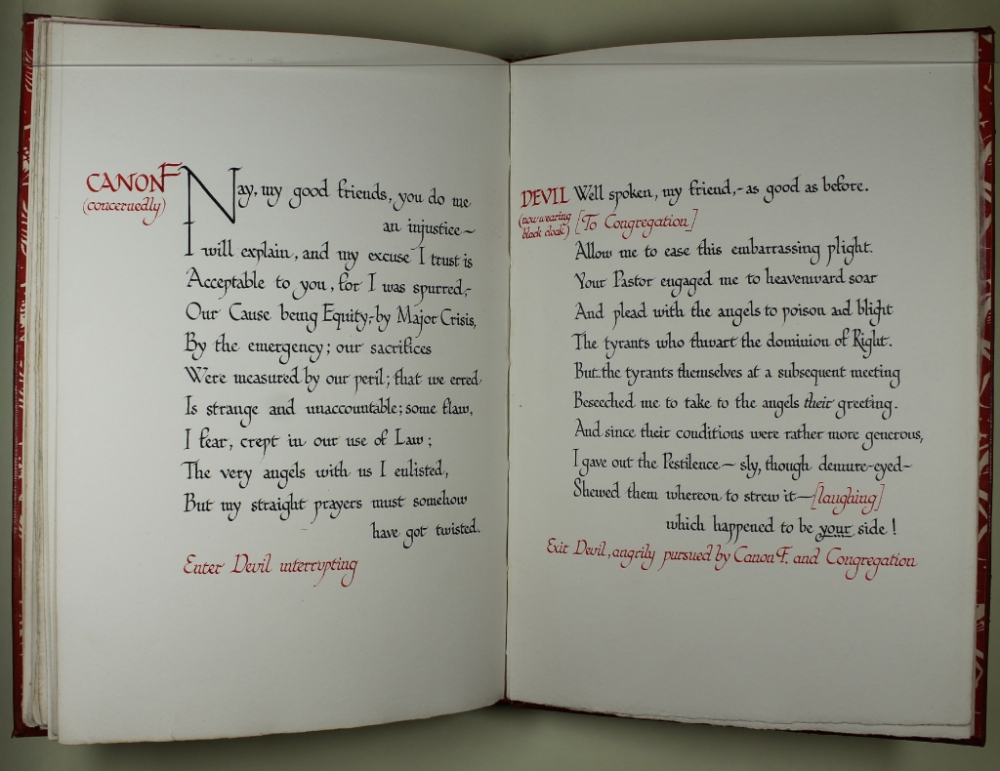 CANON F
(concernedly)
Nay, my good friends, you do me
an injustice~
I will explain, and my excuse I trust is
Acceptable to you, for I was spurred,-
Our Cause being Equity,-by Major Crisis,
By the emergency; our sacrifices
Were measured by our peril; that we erred
Is strange and unaccountable; some flaw,
I fear, crept in our use of Law;
The very angels with us I enlisted,
But my straight prayers must somehow
have got twisted.
Enter Devil interrupting
DEVIL Well spoken, my friend,- as good as before.
(now wearing black cloak) [To Congregation]
Allow me to ease this embarrassing plight.
Your Pastor engaged me to heavenward soar
And plead with the angels to poison and blight
The tyrants who thwart the dominion of Right.
But the tyrants themselves at a subsequent meeting
Beseeched me to take to the angels their greeting.
And since their conditions were rather more generous,
I gave out the Pestilence~ sly, though demure-eyed~
Shewed them whereon to strew it—[laughing]
which happened to be your side!
Exit Devil, angrily pursued by Canon F. and Congregation